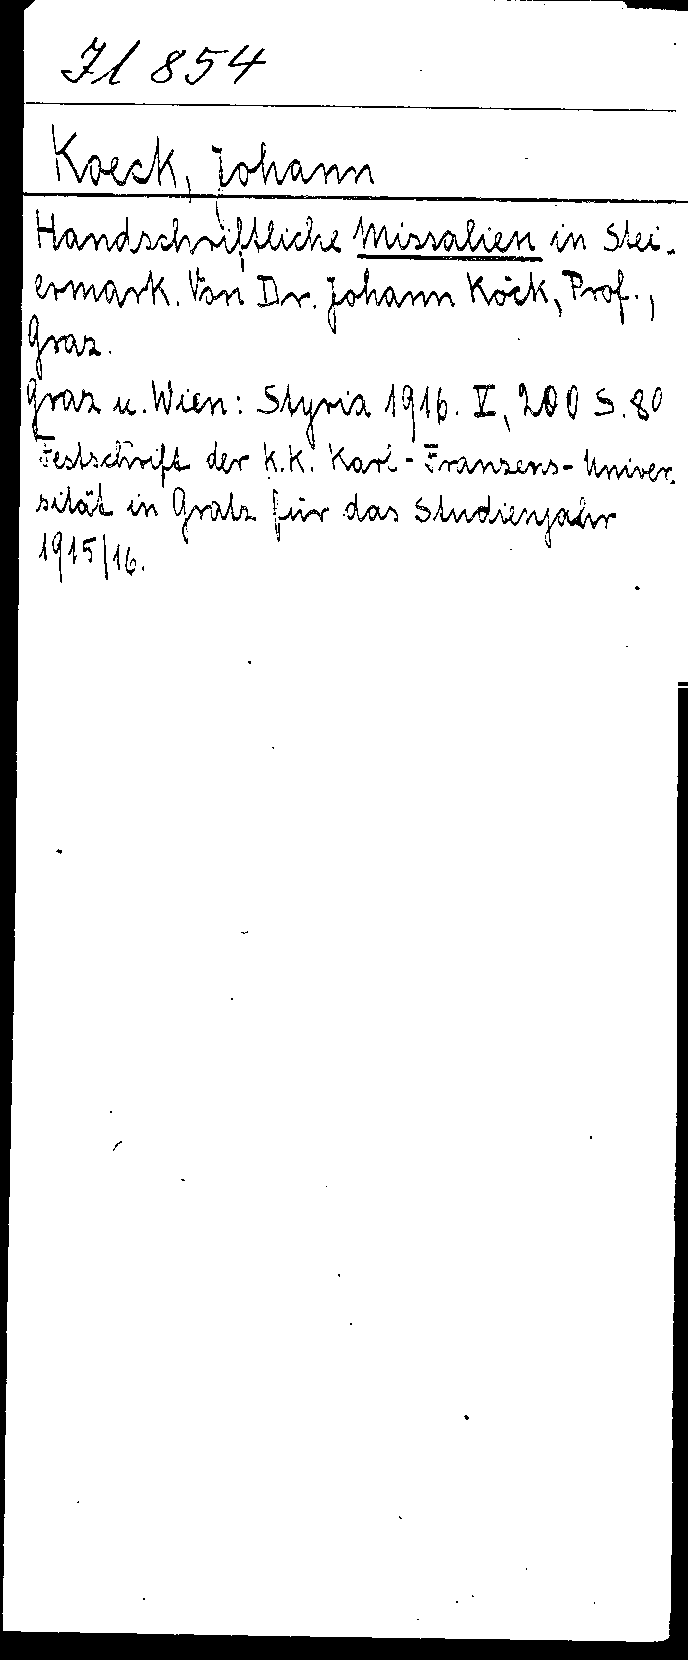 Jl 854
Koeck, Johann
Handschriftliche Missalien in Stei-
ermark. Von Dr. Johann Köck, Prof.,
Graz.
Graz u. Wien: Styria 1916. V, 200 S. 8°
Festschrift der K.K. Karl-Franzens-Univer-
sität in Gratz für das Studienjahr
1915/16.